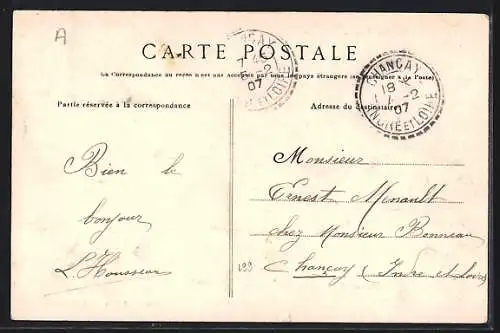 A
CARTE POSTALE
La Correspondance au recto n'est pas acceptée par tous les pays étrangers (se renseigner à la Poste)
Partie réservée à la correspondance
Adresse du destinataire
CHANÇAY
07
INDRE ET LOIRE
CHANÇAY
18
1 -2
07
INDRE ET LOIRE
Bien le
bonjour
L. Housseau
Monsieur
Ernest Menault
chez Monsieur Bonneau
Chançay (Indre et Loire)
129